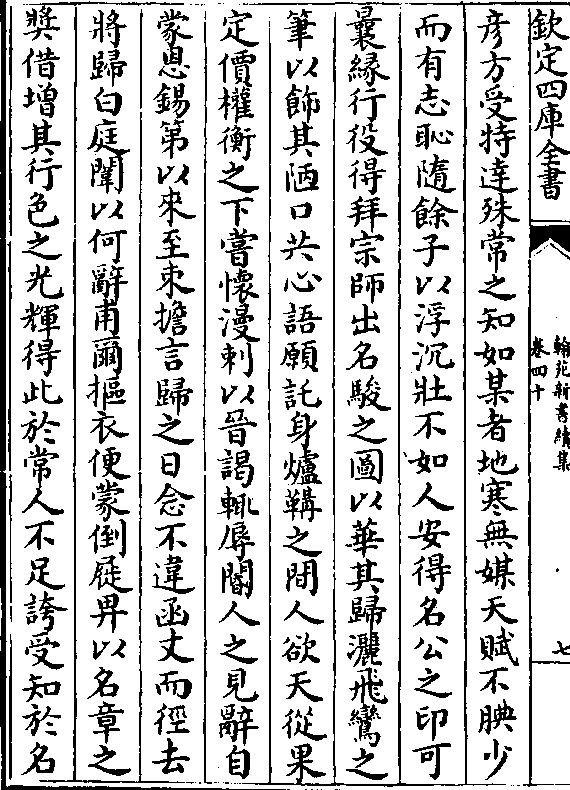 欽定四庫全書
翰苑新書續集
卷四十
七
彦方受持達殊常之知如某者地寒無媒天賦不腆少
而有志恥隨餘子以浮沉壯不如人安得名公之印可
曩緣行役得拜宗師出名駿之圖以華其歸灑飛鸞之
筆以飾其陋口共心語願託身爐鞲之間人欲天從果
定價權衡之下嘗懷漫刺以晉謁輒辱閽人之見辭自
蒙恩錫第以來至朿擔言歸之日念不違函丈而徑去
將歸白庭闈以何辭甫爾摳衣便蒙倒屣畀以名章之
奬借增其行色之光輝得此於常人不足誇受知於名